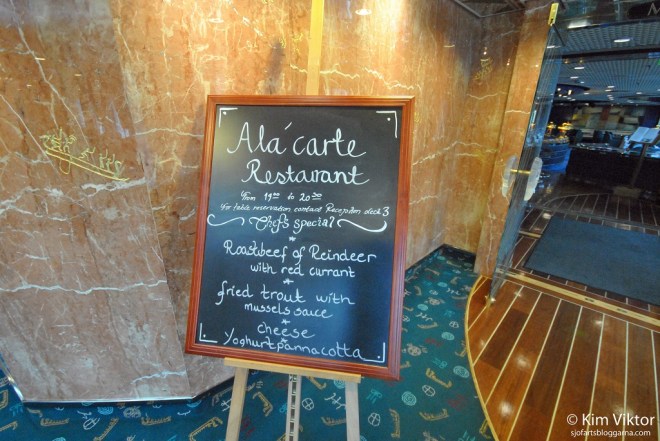 Alá carte
Restaurant
from 19⁰⁰ to 20³⁰
for table reservation contact Reception deck 3
Chef's special
*
Roastbeef of Reindeer
with red currant
*
fried trout with
mussels sauce
*
cheese
*
Yoghurtpannacotta
© Kim Viktor
sjofartsbloggarna.com